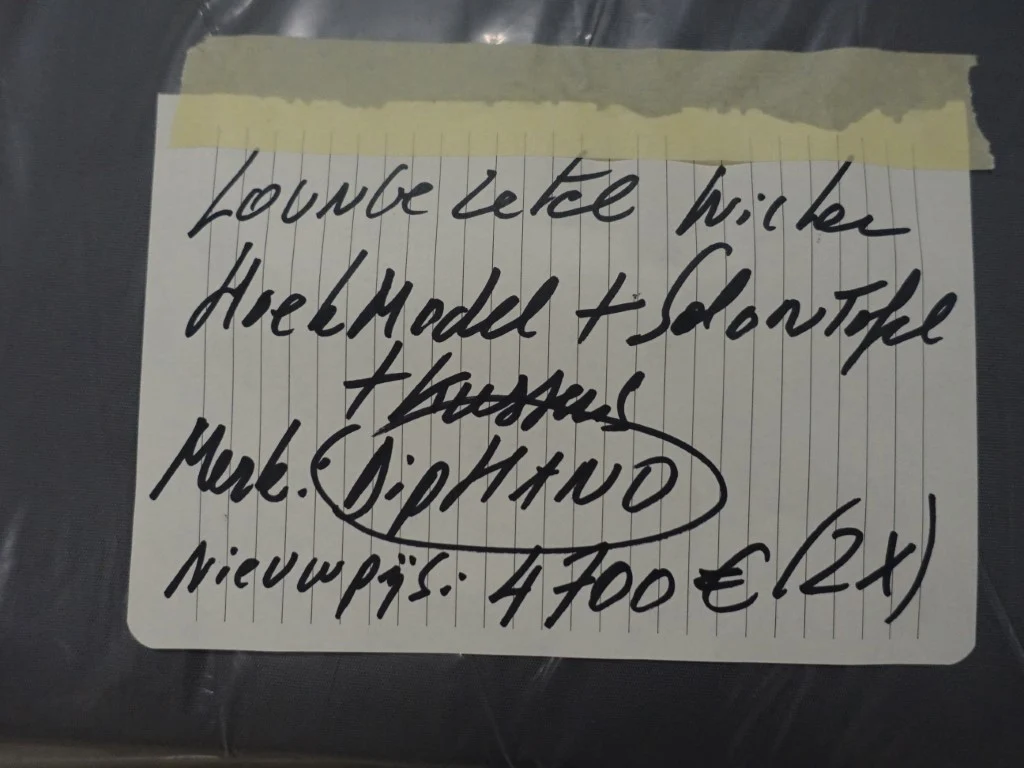 Lounge Zetel Wicker
Hoek Model + Salon Tafel
+ Kussens
Merk: DipHANO
Nieuwprijs: 4700 € (2x)